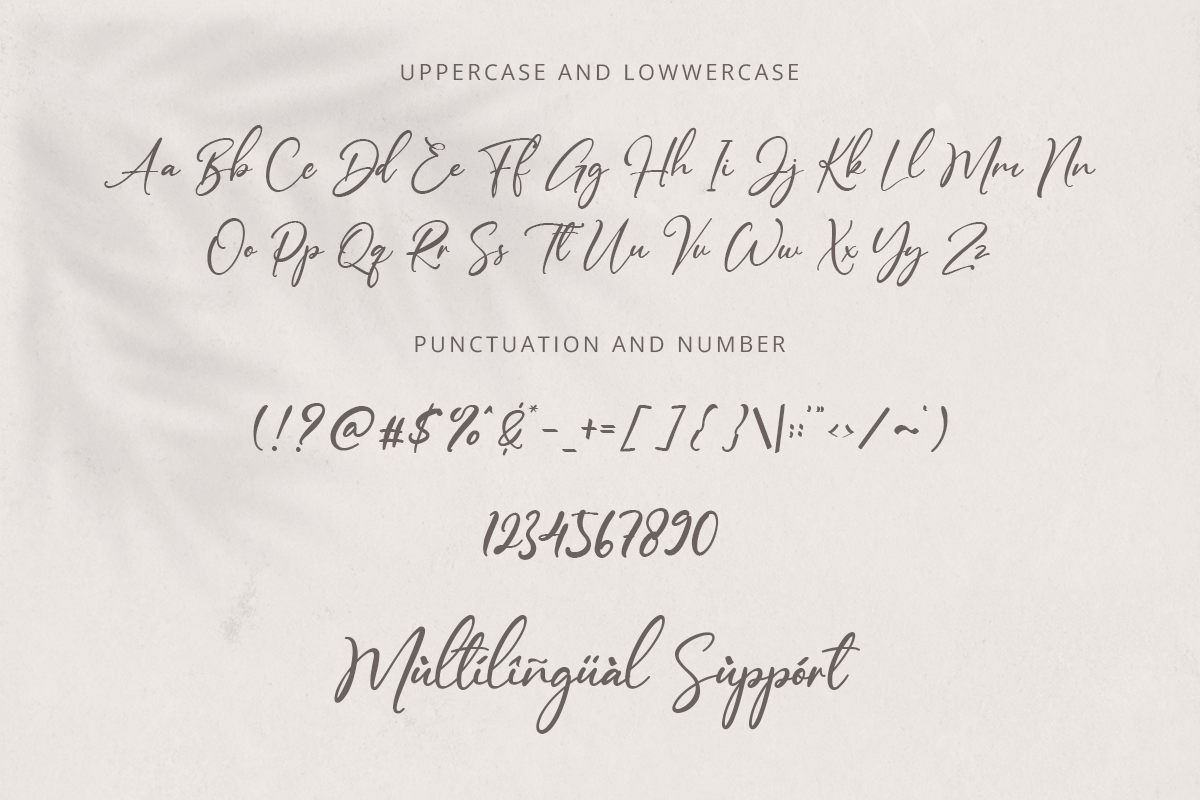 UPPERCASE AND LOWWERCASE
Aa Bb Cc Dd Ee Ff Gg Hh Ii Jj Kk Ll Mm Nn
Oo Pp Qq Rr Ss Tt Uu Vu Ww Xx Yy Zz
PUNCTUATION AND NUMBER
(!?@#$%^&*-_+=[]{}\|:;'"<>/~`)
1234567890
Mùltílîñgüàl Sùppórt